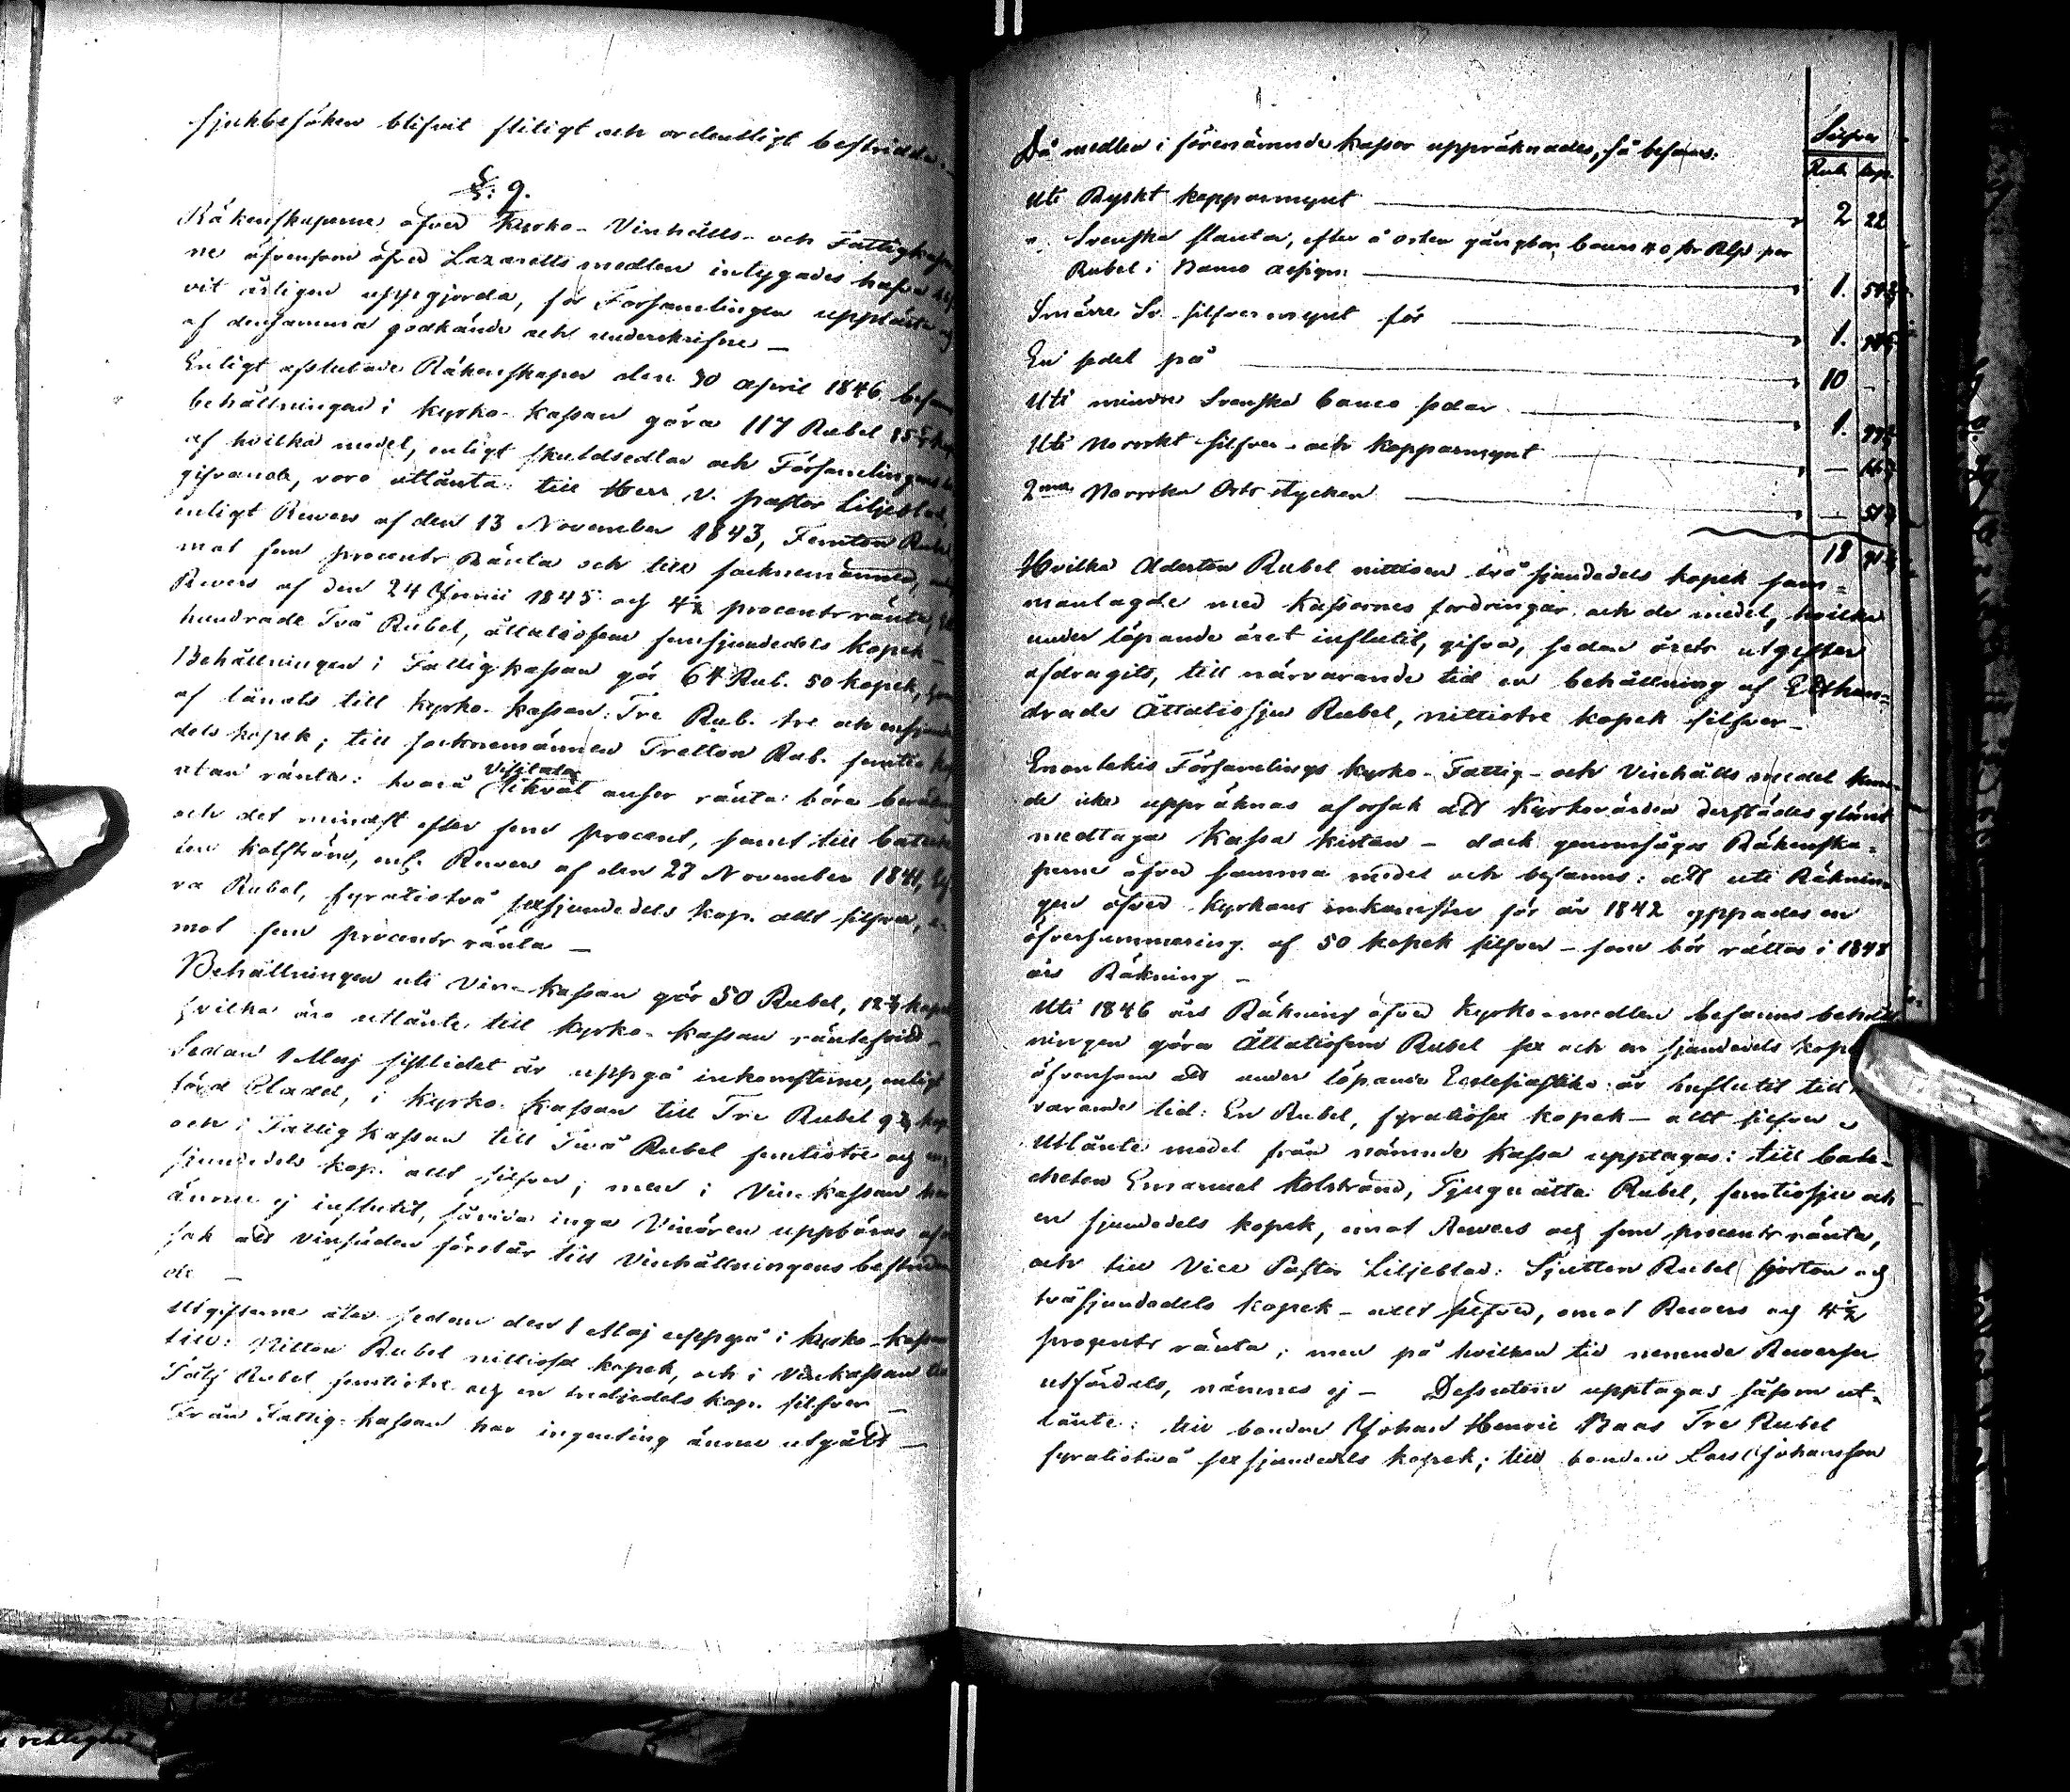 sjukbesöken blifvit flitigt och ordentligt bestridde.
§: 9.
Räkenskaperne öfver Kyrko- Vinhålls- och Fattigkassor
ne äfvensom öfver Lazaretts medlen intygades hafva blif
vit årligen uppgjorda, för Församlingen upplästa och
af densamma godkände och underskrifne —
Enligt afslutade Räkenskaper den 30 April 1846 befanns
behållningen i Kyrko-Kassan göra 117 Rubel
af hvilka medel, enligt skuldsedlar och Församlingens
gifvande, voro utlånta: till Herr V. Pastor Liljeblad,
enligt Revers af den 13 November 1843, Femton Rubel
mot fem procents Ränta och till socknemännen,
Revers af den 24 Junii 1845 och 4½ procents ränta,
hundrade Två Rubel, åttatiofem femsjundedels kopek —
Behållningen i Fattigkassan gör 64 Rub. 50 kopek,
af lånats till Kyrko-Kassan: Tre Rub. tre och ensjunde
dels kopek; till socknemännen Tretton Rub. femtio kop
utan ränta: hvarå Visitator anser ränta böra beräknas
och det mindst efter fem procent, samt till
Kolström, enl. Revers af den 27 November 1841,
ra Rubel, fyratiotvå sexsjundedels kop. allt silfver,
mot fem procents ränta —
Behållningen uti Vin-Kassan gör 50 Rubel, kopek
hvilka äro utlånte till Kyrko-Kassan räntefritt —
Sedan 1 Maj sistlidet år uppgå inkomsterne, enligt
förd Cladd, i Kyrko-Kassan till Tre Rubel kop.
och i Fattigkassan till Två Rubel femtiotre och
sjundedels kop. allt silfver; men i Vin-Kassan har
ännu ej influtit, såvida inga Vinören uppbäras
sak att vinsäden förslår till Vinhållningens bestridan
de —
Utgifterne åter sedan den 1 Maj uppgå i Kyrko-Kassan
till: Nitton Rubel nittiosex kopek, och i Vinkassan
Rubel femtiotre och en tredjedels kop. silfver —
Från Fattig-Kassan har ingenting ännu utgått —
Då medlen i förenämnde Kassor uppräknades, så befanns:
Silfver
Rub. kop.
Uti Ryskt kopparmynt 2 22
" Svenska slantar, efter å orten gångbar
Rubel i Banco assign: 1.
Smärre Sv. silfvermynt för 1.
En sedel på 10 —
Uti mindre Svenska banco sedlar 1.
Uti Norrskt silfver- och kopparmynt —
2ne Norrska Orts stycken —
18
Hvilka Aderton Rubel nittioen två sjundedels kopek sam=
manlagde med Kassornes fordringar och de medel, hvilka
under löpande året influtit, gifva, sedan årets utgifter
afdragits, till närvarande tid en behållning af Etthun=
drade Åttatiosju Rubel, nittiotre kopek silfver —
Enontekis Församlings Kyrko- Fattig- och Vinhålls medel kun-
de icke uppräknas af orsak att Kyrkovärden derstädes glömt
medtaga Kassa kistan — dock genomsågos Räkenska=
perne öfver samma medel och befanns: att uti Räknin=
gen öfver Kyrkans inkomster för år 1842 yppades en
öfversummering af 50 kopek silfver — som bör rättas i 1847
års Räkning —
Uti 1846 års Räkning öfver Kyrko-medlen befanns behåll
ningen göra Åttatiofem Rubel sex och en sjundedels
äfvensom att under löpande Ecclesiastika år influtit till
varande tid: En Rubel, fyratiosex kopek — allt silfver
Utlånte medel från nämnde Kassa upptagas: till Cate=
cheten Emanuel Kolström, Tjuguåtta Rubel, femtiosju och
en sjundedels kopek, emot Revers och fem procents ränta,
och till Vice Pastor Liljeblad: Sjutton Rubel fjorton och
två sjundedels kopek — allt silfver, emot Revers och 4½
procents ränta; men på hvilken tid nämnde Reverser
utfärdats, nämnes ej — Dessutom upptagas såsom ut=
lånte: till bonden Johan Henric Baas Tre Rubel
fyratiotvå sexsjundedels kopek; till bonden Lars Johansson